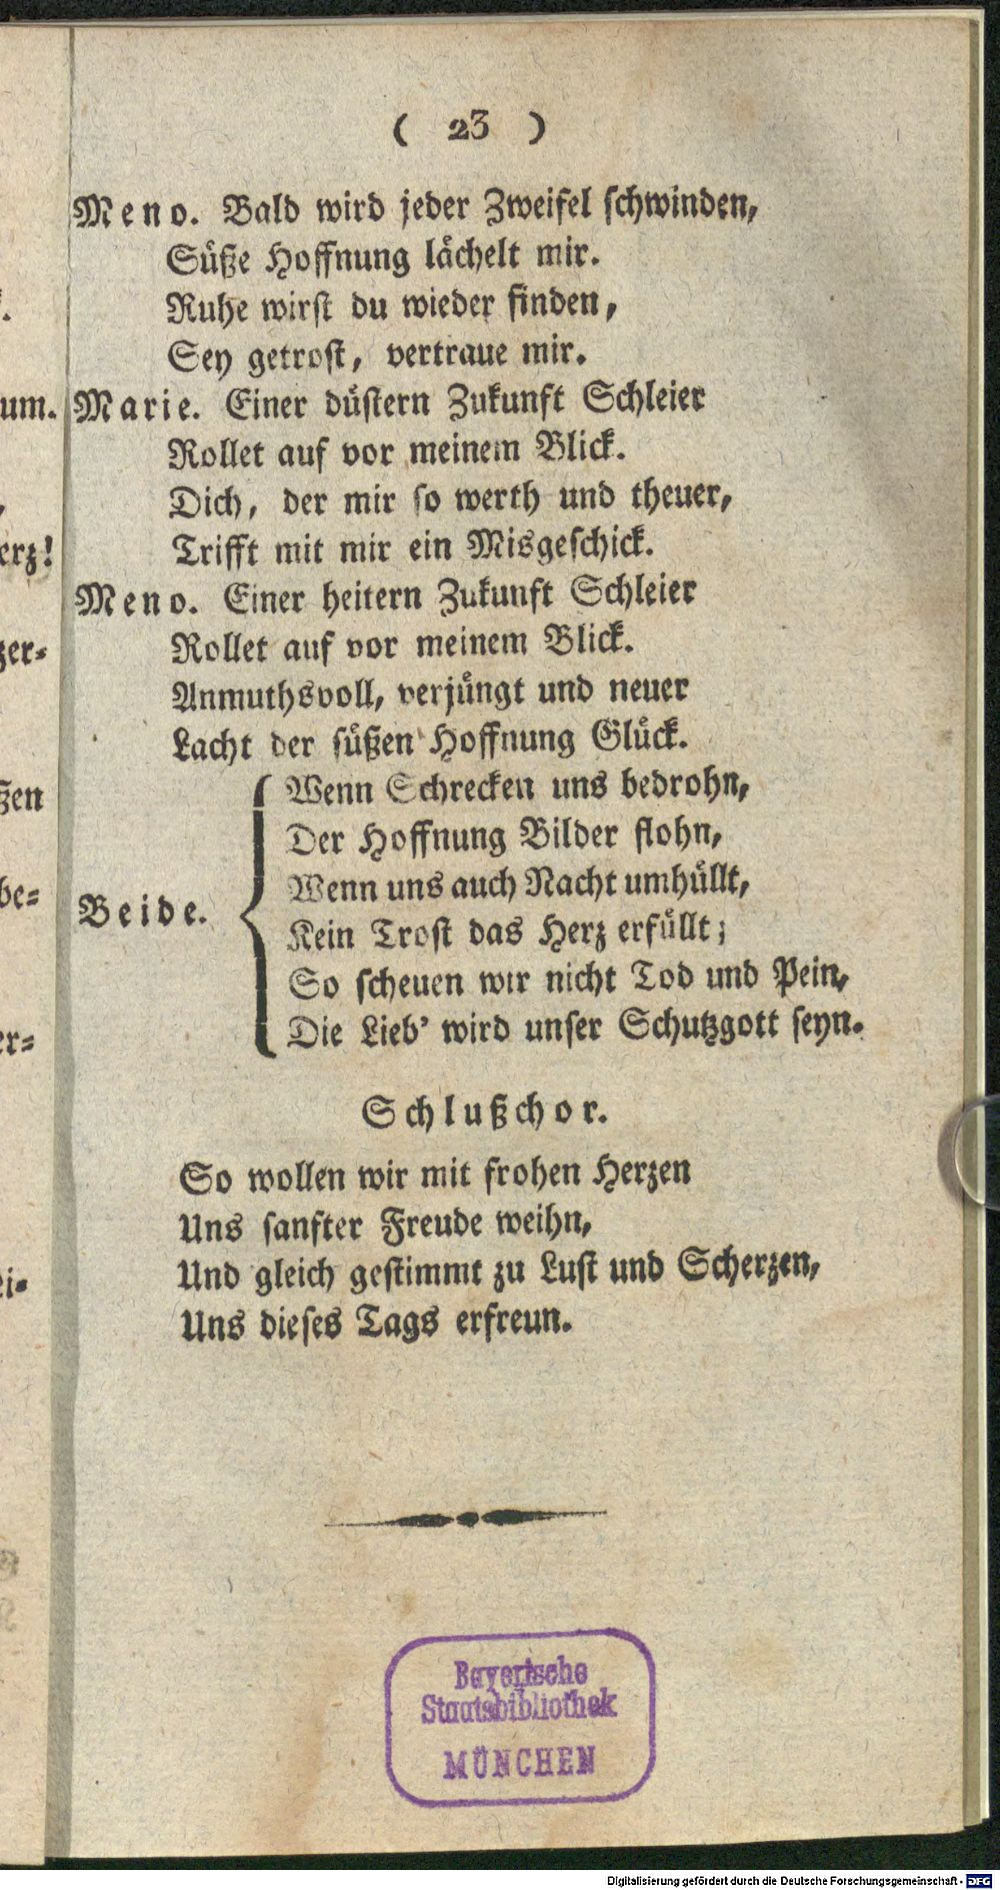 ( 23 )
Meno. Bald wird jeder Zweifel schwinden,
Süße Hoffnung lächelt mir.
Ruhe wirst du wieder finden,
Sey getrost, vertraue mir.
um.
Marie. Einer düstern Zukunft Schleier
Rollet auf vor meinem Blick.
Dich, der mir so werth und theuer,
erz!
Trifft mit mir ein Misgeschick.
Meno. Einer heitern Zukunft Schleier
zer-
Rollet auf vor meinem Blick.
Anmuthsvoll, verjüngt und neuer
Lacht der süßen Hoffnung Glück.
ßen
Wenn Schrecken uns bedrohn,
Der Hoffnung Bilder flohn,
be-
Wenn uns auch Nacht umhüllt,
Beide.
Kein Trost das Herz erfüllt;
So scheuen wir nicht Tod und Pein,
er-
Die Lieb' wird unser Schutzgott seyn.
Schlußchor.
So wollen wir mit frohen Herzen
Uns sanfter Freude weihn,
Und gleich gestimmt zu Lust und Scherzen,
Uns dieses Tags erfreun.
Bayerische
Staatsbibliothek
MÜNCHEN
Digitalisierung gefördert durch die Deutsche Forschungsgemeinschaft - DFG